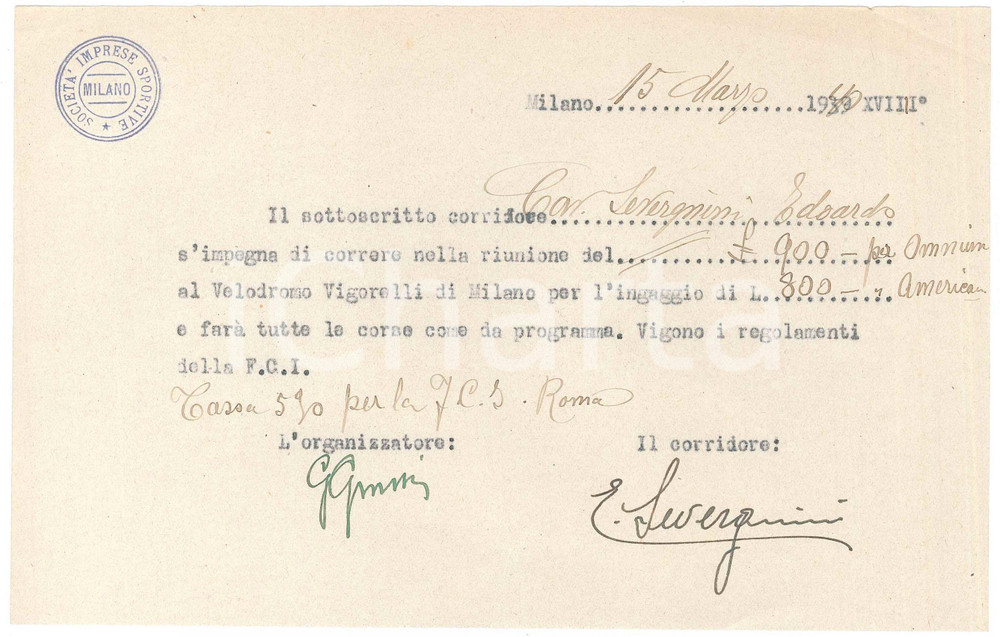 SOCIETA' IMPRESE SPORTIVE
MILANO
Milano....15 Marzo.....1940 XVIII°
Il sottoscritto corridore Cav. Severgnini Edoardo
s'impegna di correre nella riunione del.......£ 900 - per Omnium
al Velodromo Vigorelli di Milano per l'ingaggio di L. 800 - " American
e farà tutte le corse come da programma. Vigono i regolamenti
della F.C.I.
Tassa 5% per la F.C.I. Roma
L'organizzatore: Il corridore:
E. Severgnini
iCharta